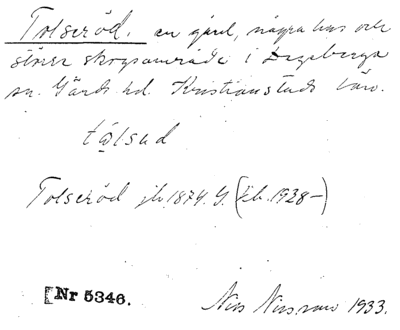 Tolseröd. en gård, några hus och
större skogsområde i Degeberga
sn. Gärds hd. Kristianstads län.
tålsud
Tolseröd jb. 1874. G. (jb. 1928-)
[Nr 5346.
Nils Nilsson 1933.